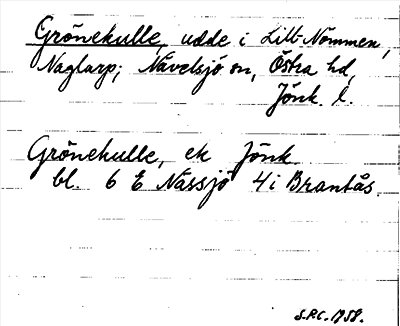 Grönekulle, udde i Lill-Nömmen,
Naglarp; Nävelsjö sn, Östra hd,
Jönk. l.
Grönekulle, ek Jönk.
bl. 6 E Nässjö 4 i Brantås.
S.P.C. 1958.